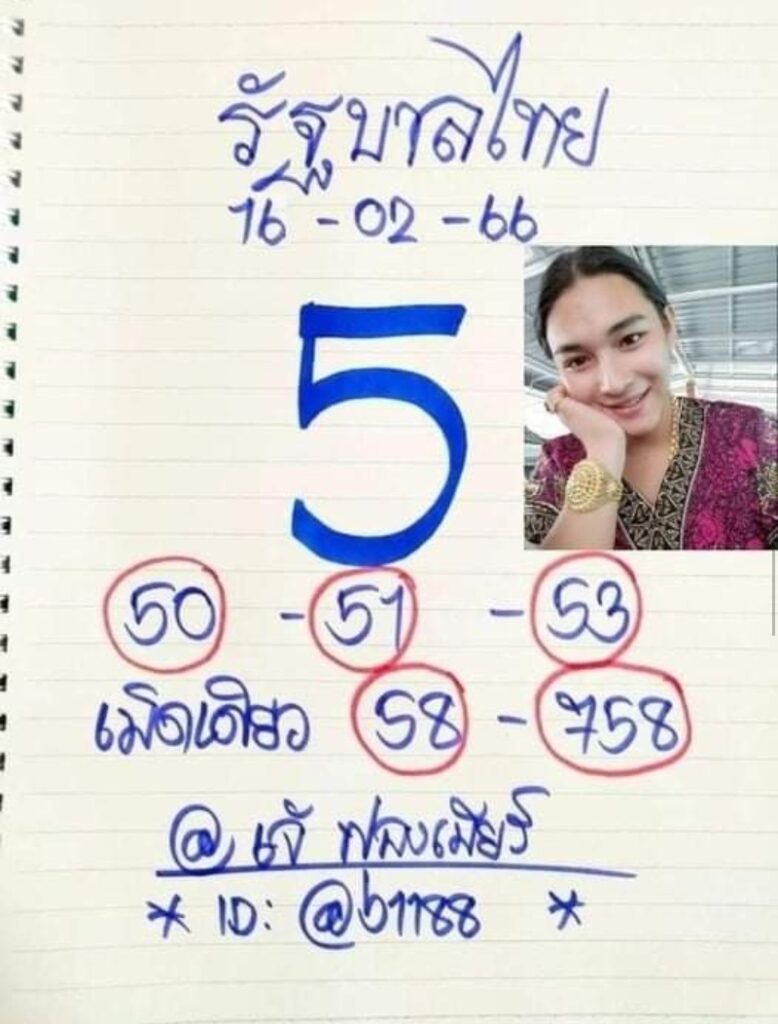 รัฐบาลไทย
16 - 02 - 66
5
50 - 51 - 53
เม็ดเดียว 58 - 758
@ เจ๊ ฟองเบียร์
* ID: @b1188 *